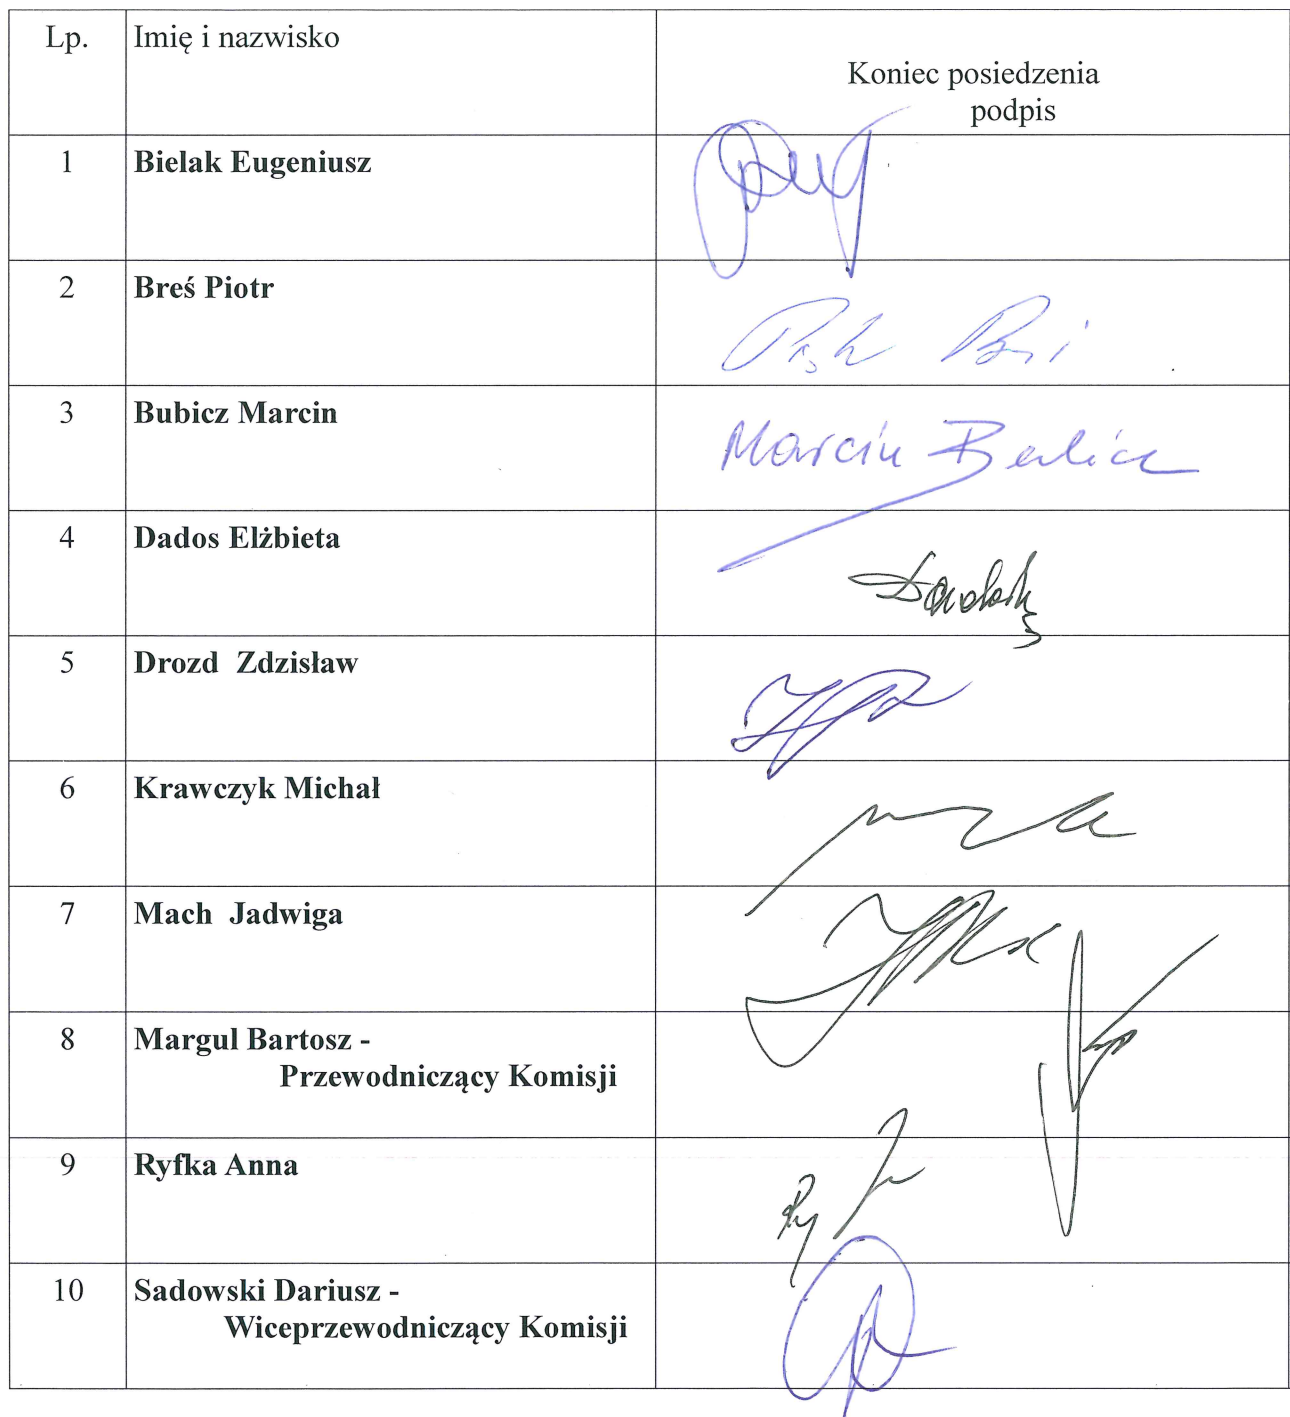 Lp.
Imię i nazwisko
Koniec posiedzenia
podpis
1
Bielak Eugeniusz
2
Breś Piotr
3
Bubicz Marcin
Marcin
4
Dados Elżbieta
5
Drozd Zdzisław
6
Krawczyk Michał
7
Mach Jadwiga
8
Margul Bartosz -
Przewodniczący Komisji
9
Ryfka Anna
10
Sadowski Dariusz -
Wiceprzewodniczący Komisji